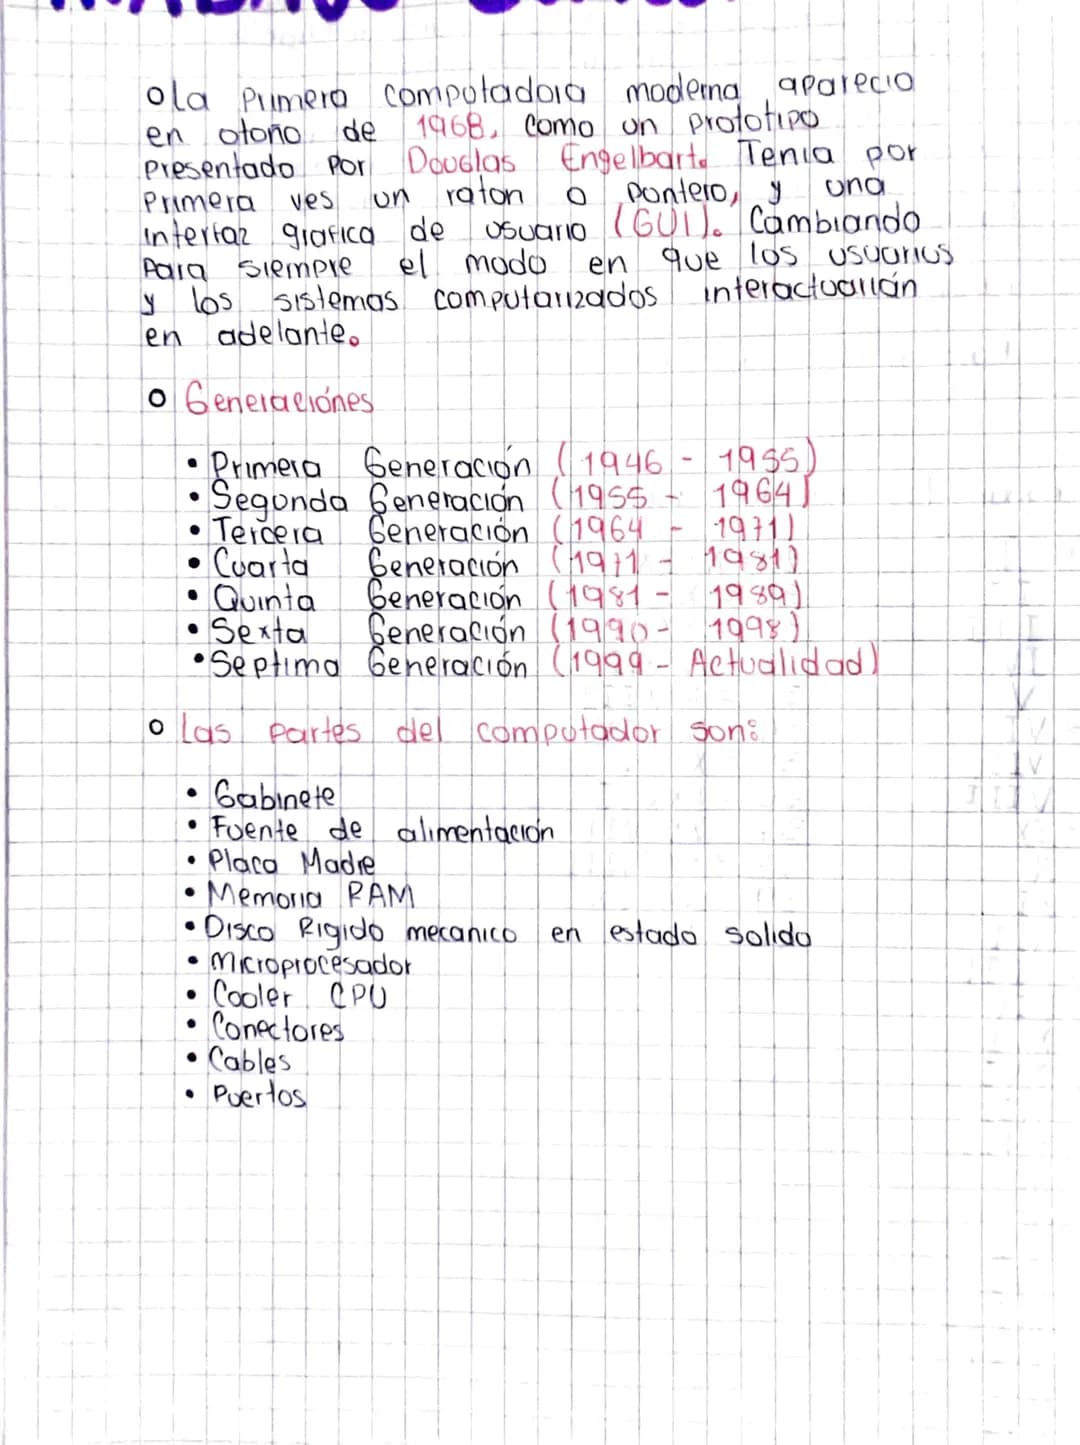 o La Primera computadora moderna aparecio
en otoño de 1968, como un prototipo
presentado por Douglas Engelbart. Tenia por
Primera ves un raton o pontero, y una
interfaz grafica de usuario (GUI). Cambiando
Para siempre el modo en que los usuarios
y los sistemas computarizados interactuarián
en adelante.
o Generaciónes
• Primera Generación (1946 - 1955)
• Segunda Generación (1955 - 1964)
• Tercera Generación (1964 - 1971)
• Cuarta Generación (1971 - 1981)
• Quinta Generación (1981 - 1989)
• Sexta Generación (1990 - 1998)
• Septima Generación (1999 - Actualidad)
o Las partes del computador son:
• Gabinete
• Fuente de alimentación
• Placa Madre
• Memoria RAM
• Disco Rigido mecanico en estado solido
• Microprocesador
• Cooler CPU
• Conectores
• Cables
• Puertos